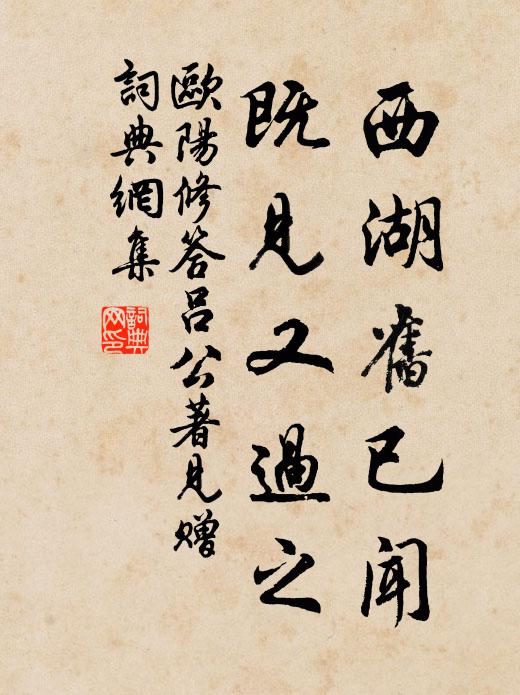 西湖舊已聞
既見又過之
歐陽修答呂公著見贈
詞典網集
詞典網印